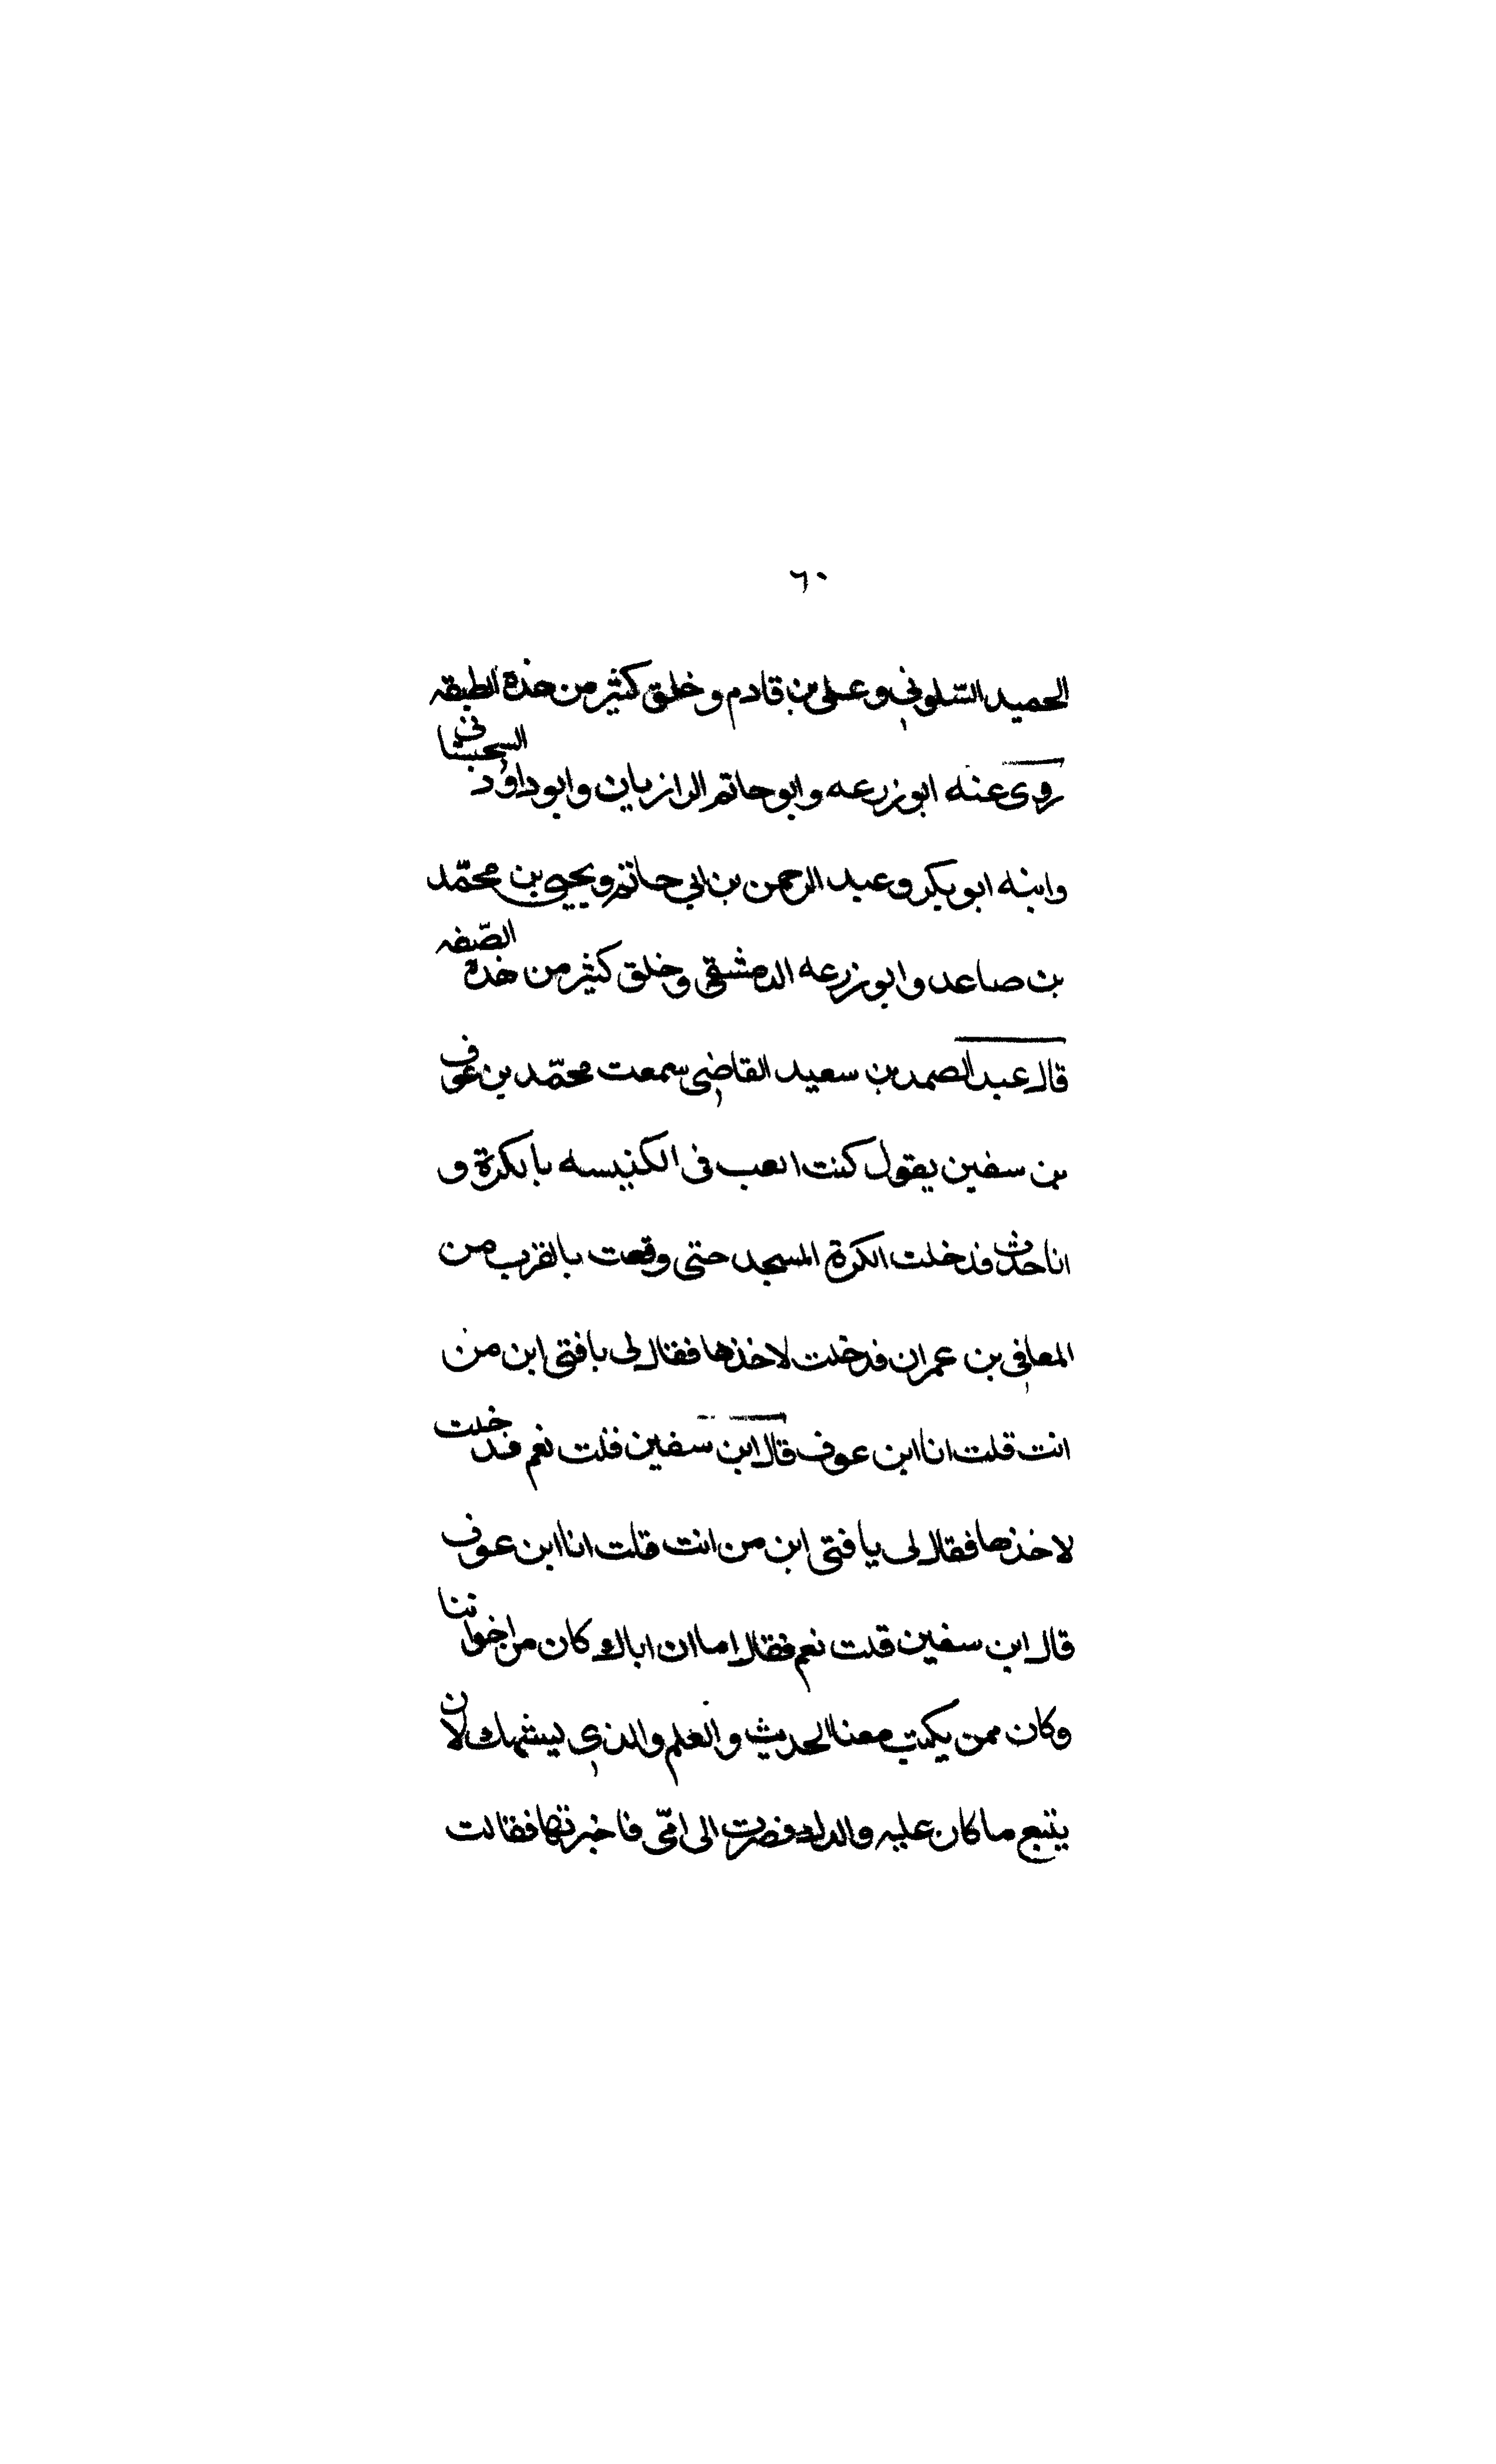 ٦٠
الحميد السلوني وعلى بن قادم وخلق كثير من هذه الطبقه
روى عنه ابو زرعه وابو حاتم الرازيان وابو داود السجستانى
وابنه ابو بكر وعبد الرحمن بن ابي حاتم ويحيى بن محمّد
بن صاعد وابو زرعه الدمشقى وخلق كثير من هذه الصّفه
قال عبد الصمد بن سعيد القاضي سمعت محمّد بن عوف
بن سفين يقول كنت العب فى الكنيسه بالكرة و
انا حدث فدخلت الكرة المسجد حتى وقعت بالقرب من
المعافي بن عمران فدخلت لاخذها فقال لى يا فتى ابن من
انت قلت انا ابن عوف قال ابن سفين قلت نعم فدخلت
لاخذها فقال لى يا فتى ابن من انت قلت انا ابن عوف
قال ابن سفين قلت نعم فقال اما ان اباك كان من اخواننا
وكان ممن يكتب معنا الحديث والعلم والذي يشبهك لان
يتبع ما كان عليه والدك فصرت الى امّى فاخبرتها فقالت